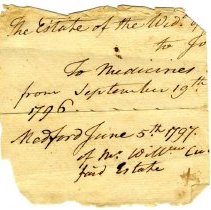 The Estate of the Wd. of
to Jo
To Medicines
from September 19th
1796
Medford June 5th 1797.
of Mr. Willm Cu
Estate